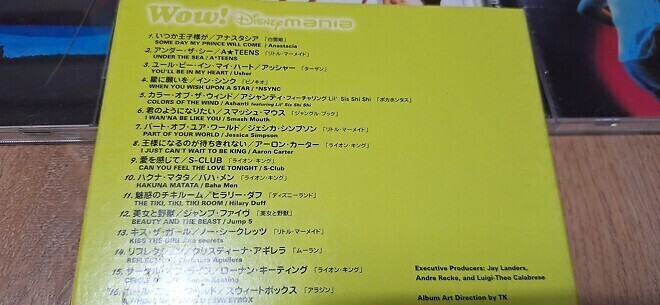 Wow! Disney mania
1. いつか王子様が／アナスタシア 「白雪姫」
SOME DAY MY PRINCE WILL COME / Anastacia
2. アンダー・ザ・シー／A★TEENS 「リトル・マーメイド」
UNDER THE SEA / A*TEENS
3. ユール・ビー・イン・マイ・ハート／アッシャー 「ターザン」
YOU'LL BE IN MY HEART / Usher
4. 星に願いを／イン・シンク 「ピノキオ」
WHEN YOU WISH UPON A STAR / *NSYNC
5. カラー・オブ・ザ・ウィンド／アシャンティ・フィーチャリング Lil' Sis Shi Shi 「ポカホンタス」
COLORS OF THE WIND / Ashanti featuring Lil' Sis Shi Shi
6. 君のようになりたい／スマッシュ・マウス 「ジャングル・ブック」
I WAN'NA BE LIKE YOU / Smash Mouth
7. パート・オブ・ユア・ワールド／ジェシカ・シンプソン 「リトル・マーメイド」
PART OF YOUR WORLD / Jessica Simpson
8. 王様になるのが待ちきれない／アーロン・カーター 「ライオン・キング」
I JUST CAN'T WAIT TO BE KING / Aaron Carter
9. 愛を感じて／S-CLUB 「ライオン・キング」
CAN YOU FEEL THE LOVE TONIGHT / S-Club
10. ハクナ・マタタ／バハ・メン 「ライオン・キング」
HAKUNA MATATA / Baha Men
11. 魅惑のチキルーム／ヒラリー・ダフ 「ディズニーランド」
THE TIKI, TIKI, TIKI ROOM / Hilary Duff
12. 美女と野獣／ジャンプ・ファイヴ 「美女と野獣」
BEAUTY AND THE BEAST / Jump 5
13. キス・ザ・ガール／ノー・シークレッツ 「リトル・マーメイド」
KISS THE GIRL / no secrets
14. リフレクション／クリスティーナ・アギレラ 「ムーラン」
REFLECTION / Christina Aguilera
15. サークル・オブ・ライフ／ローナン・キーティング 「ライオン・キング」
CIRCLE OF Keating
16. ホール・ ／スウィートボックス 「アラジン」
SWEETBOX
Executive Producers: Jay Landers,
Andre Recke, and Luigi-Theo Calabrese
Album Art Direction by TK